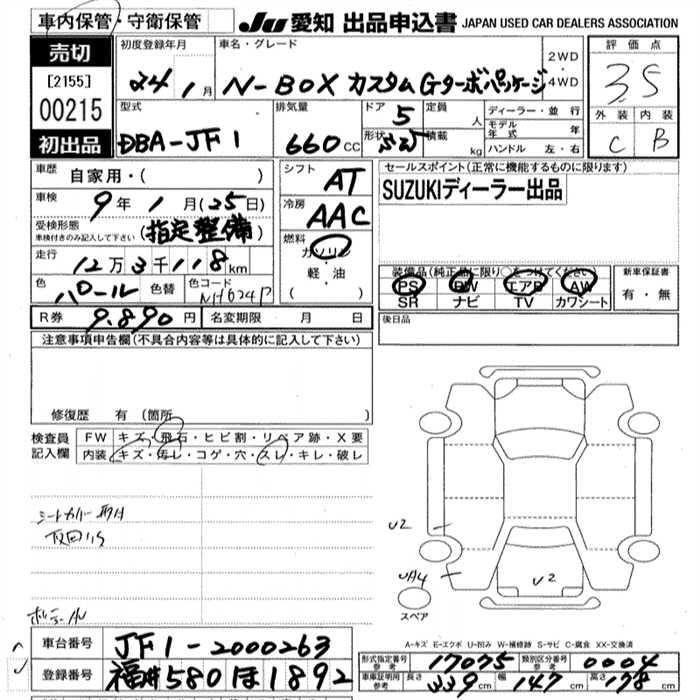 車内保管・守衛保管
JU 愛知 出品申込書 JAPAN USED CAR DEALERS ASSOCIATION
売切
[2155]
00215
初出品
初度登録年月
24 1月
車名・グレード
N-BOX カスタムGターボパッケージ
2WD
4WD
評価点
3.5
外装 内装
C B
型式
DBA-JF1
排気量
660cc
ドア 5
形状
定員 人
積載 kg
ディーラー・並行
モデル年式 年
ハンドル 左・右
車歴 自家用・( )
車検 9年1月(25日)
受検形態
車検付きのみ記入して下さい (指定整備)
走行 12万3千118km
色 パール 色替 色コード NH624P
シフト AT
冷房 AAC
燃料 ガソリン
軽・油
( )
セールスポイント(正常に機能するものに限ります)
SUZUKIディーラー出品
装備品(純正品に限り○をつけてください)
PS PW エアB AW
SR ナビ TV カワシート
新車保証書
有・無
R券 9,890円 名変期限 月 日
後日品
注意事項申告欄(不具合内容等は具体的に記入して下さい)
修復歴 有(箇所 )
検査員記入欄
FW キズ・飛石・ヒビ割・リペア跡・X要
内装 キズ・汚レ・コゲ・穴・スレ・キレ・破レ
シートカバー取付
U2
UA4
U2
スペア
A-キズ E-エクボ U-凹み W-補修跡 S-サビ C-腐食 XX-交換済
車台番号 JF1-2000263
登録番号 福井580ほ1892
形式指定番号 参考 17075 類別区分番号 参考 0004
車庫証明用 参考 長さ 339cm 幅 147cm 高さ 178cm